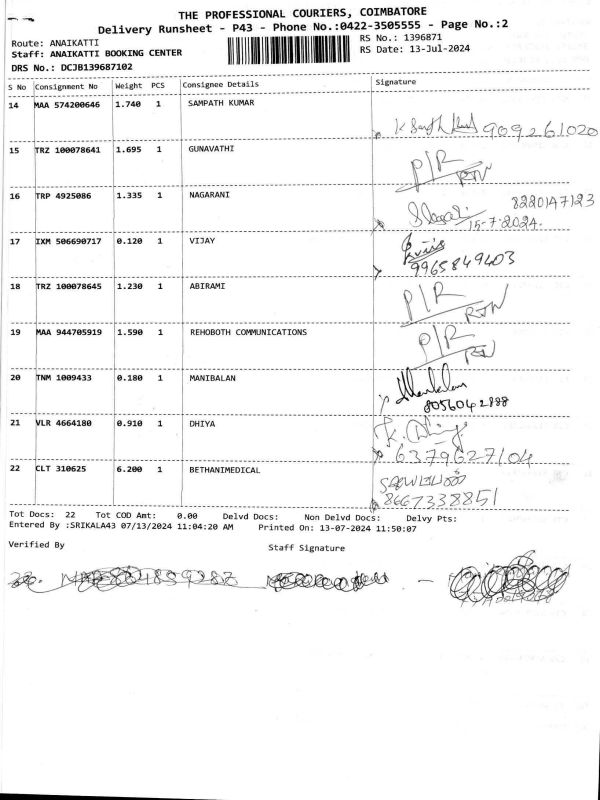 THE PROFESSIONAL COURIERS, COIMBATORE
Delivery Runsheet - P43 - Phone No.:0422-3505555 - Page No.:2
Route: ANAIKATTI
RS No.: 1396871
Staff: ANAIKATTI BOOKING CENTER
RS Date: 13-Jul-2024
DRS No.: DCJB139687102
S No Consignment No Weight PCS Consignee Details Signature
14 MAA 574200646 1.740 1 SAMPATH KUMAR
9092261020
15 TRZ 100078641 1.695 1 GUNAVATHI
P/R RTN
16 TRP 4925086 1.335 1 NAGARANI
8220147123
15-7-2024.
17 IXM 506690717 0.120 1 VIJAY
9965849403
18 TRZ 100078645 1.230 1 ABIRAMI
P/R RTN
19 MAA 944705919 1.590 1 REHOBOTH COMMUNICATIONS
P/R RTN
20 TNM 1009433 0.180 1 MANIBALAN
8056042888
21 VLR 4664180 0.910 1 DHIYA
6379627104
22 CLT 310625 6.200 1 BETHANIMEDICAL
8667338851
Tot Docs: 22 Tot COD Amt: 0.00 Delvd Docs: Non Delvd Docs: Delvy Pts:
Entered By :SRIKALA43 07/13/2024 11:04:20 AM Printed On: 13-07-2024 11:50:07
Verified By
Staff Signature